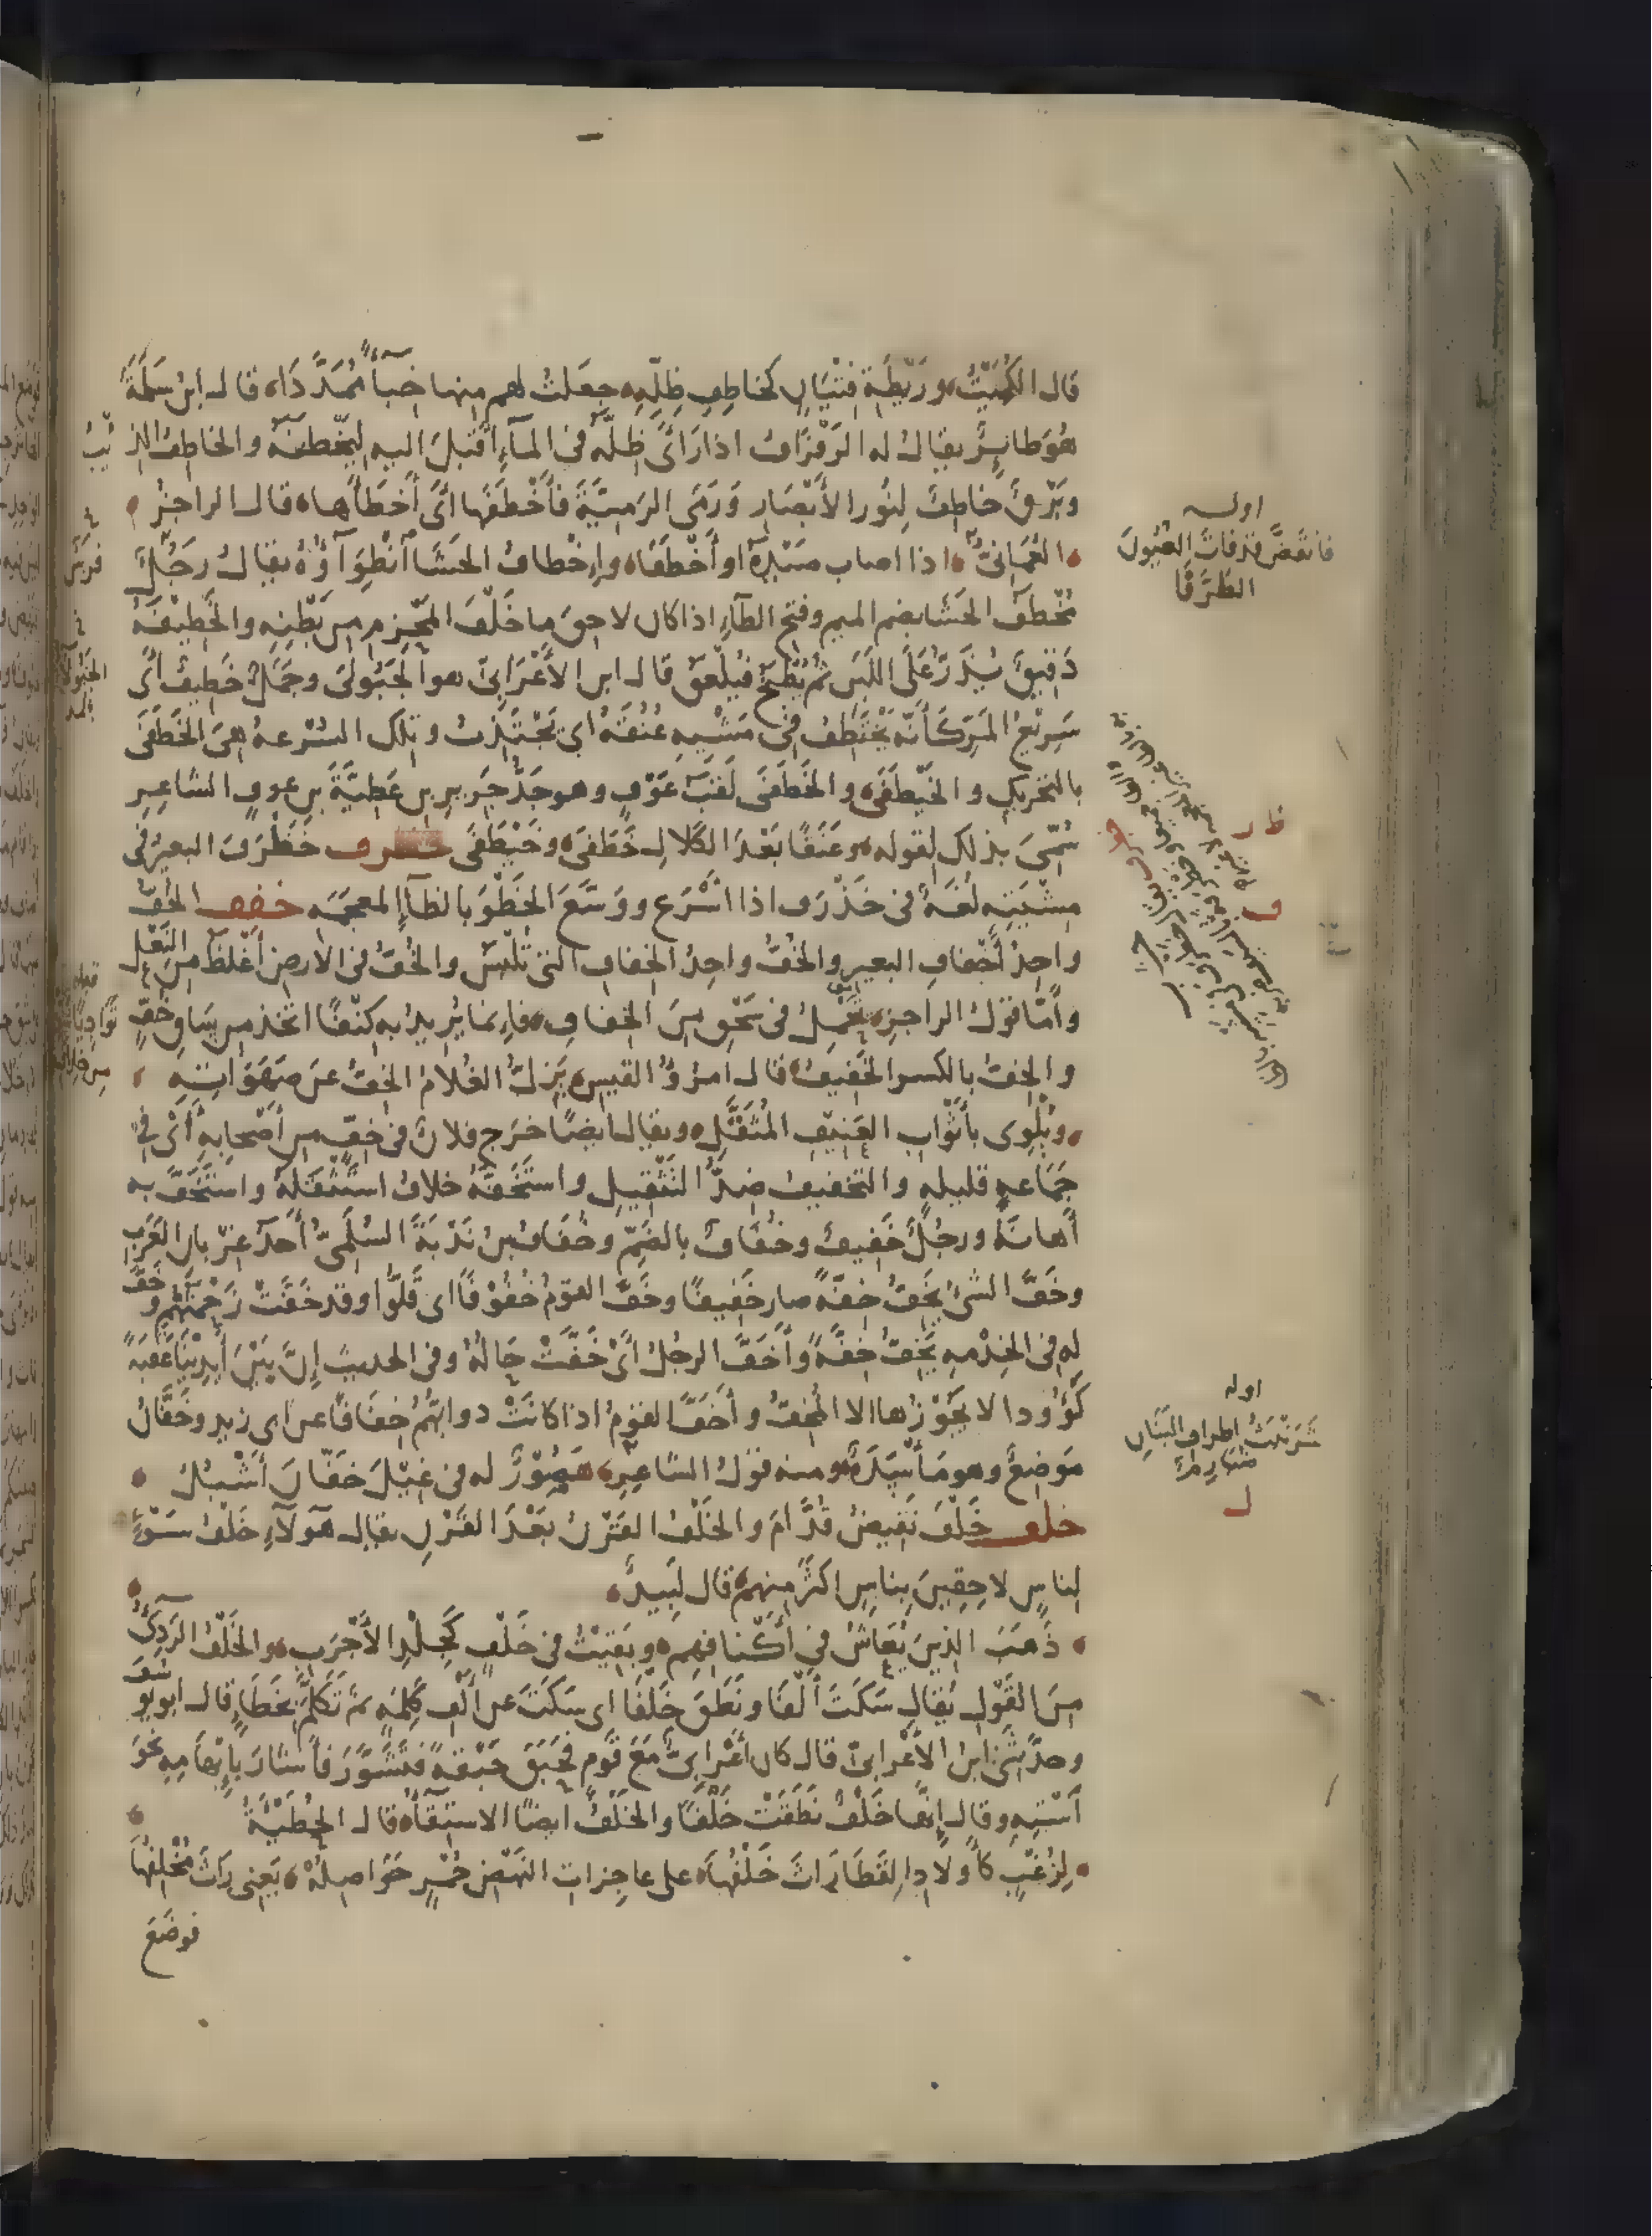 قال الكُمَيْتُ وَرَيْطَةِ فِتْيَانٍ كخَاطِفِ ظِلِّهِ جعَلتُ لهم منها خِبَاءً مُمَدَّدَا ه قال ابنُ سَلَمَةَ
هُوَ طائِرٌ يقالُ له الرَفْرَافُ اذا رَأَى ظِلَّهُ فى المَآءِ أَقْبَلَ اليه لِيَخْطَفَهُ والخَاطِفُ الذِئْبُ
وبَرْقٌ خَاطِفٌ لِنُورِ الأَبْصَارِ وَرَمَى الرَمِيَّةَ فأَخْطَفَها أَىْ أَخْطَأَها ه قال الراجزُ
العُمَانِىُّ اذا اصاب صَيْدَهُ او أَخْطَفَا وإِخْطافُ الحَشَا انْطِوَآؤُهُ يقالُ رَجُلٌ
مُخْطَفُ الحَشَا بضم الميم وفتح الطآءِ اذا كان لاحِقَ ما خَلْفَ المَحْزِمِ مِن بَطْنِهِ والخَطِيْفَةُ
دَقِيقٌ يُذَرُّ عَلَى اللَبَنِ ثُمّ يُطْبَخُ فيُلْعَقُ قال ابن الأَعْرَابِىّ هو الجَبُولَى وجَمَلٌ خَطِيفٌ أَىْ
سَرِيْعُ المَرِّ كَأَنَّه يَخْتَطِفُ فى مَشْيِهِ عُنُقَهُ اى يَجْتَذِبُ وتِلك السُرْعةُ هِىَ الخَطَفَى
بالتحريكِ والخَيْطَفَى والخَطَفَى لَقَبُ عَوْفٍ وهو جَدُّ جَرِيرِ بنِ عَطِيَّةَ بنِ عوفٍ الشاعِرِ
سُمِّىَ بذلك لقوله وعَنَقًا بَعْدَ الكَلَالِ خَطَفَى وخَيْطَفَى خطرف خَطْرَفَ البعيرُ فى
مِشْيَتِه لُغَةٌ فى خَذْرَفَ اذا أَسْرَع ووَسَّعَ الخَطْوَ بالظآءِ المعجمَه خفف الخُفّ
واحِدُ أَخْفَافِ البعيرِ والخُفُّ واحِدُ الخِفافِ التى تُلْبَسُ والخُفُّ فى الأرضِ أَغْلَظُ من النَعْلِ
وأَمَّا قولُ الراجزِ يَحْمِلُ فى سَحْقٍ مِنَ الخِفَافِ فإِنما يُرِيدُ به كِنْفًا اتُّخِذَ مِن سَاقِ خُفٍّ
والخِفُّ بالكسر الخَفِيفُ قال امرُؤُ القيسِ يَزِلُّ الغُلَامُ الخِفُّ عَن صَهَوَاتِهِ
ويُلْوِى بأَثْوابِ العَنِيفِ المُثَقَّلِ ويقال ايضًا خرَج فلانٌ فى خِفٍّ من أَصْحابِهِ أَىْ فى
جَمَاعةٍ قليلةٍ والتخفيفُ ضِدُّ التَثْقِيلِ واسْتَخَفَّهُ خلافُ اسْتَثْقَلَهُ واسْتَخَفَّ به
أَهانَهُ ورجُلٌ خَفِيفٌ وخُفَافٌ بالضَمِّ وخُفَافُ بنُ نَدْبَةَ السُلَمِىُّ أَحَدُ غِرْبانِ العَرَبِ
وخَفَّ الشىُ يَخِفُّ خِفَّةً صار خَفِيفًا وخَفَّ القومُ خُفُوْفًا اى قَلُّوا وقد خَفَّتْ زَحْمَتُهُم وخَفَّ
لهِ فى الخِدْمهِ يَخِفُّ خِفَّةً وأَخَفَّ الرجلُ أَىْ خَفَّتْ حَالُهُ وفى الحديث إِنَّ بَيْنَ أَيْدِيْنَا عَقَبَةً
كَؤُودا لا يَجُوْزُها الا المُخِفُّ وأَخَفَّ القومُ اذا كانَتْ دوابُّهُم خِفَافًا عن ابى زيدٍ وخَفَّانُ
مَوضِعٌ وهو مَأْسَدَةٌ ومنه قولُ الشاعِرِ هَصُوْرٌ له فى غِيْلِ خَفّانَ أَشْبُلُ
خلف خَلْفَ نَقِيضُ قُدَّامَ والخَلْفُ القَرْنُ بَعْدَ القَرْنِ يقال هَوُلَآءِ خَلْفُ سَوْءٍ
لِناسٍ لاحِقِينَ بِناسٍ اكثرَ مِنهم قال لَبِيدٌ
ذَهَبَ الذِينَ يُعَاشُ فى أَكْنافِهِم وبَقِيْتُ فى خَلْفٍ كَجِلْدِ الأَجْرَبِ والخَلْفُ الرَدِىُّ
مِنَ القَوْلِ يُقالُ سَكَتَ أَلْفًا ونَطَقَ خَلْفًا اى سَكَتَ عن أَلْفِ كَلِمَهٍ ثمّ تَكَلَّمَ بخَطَاءٍ قال ابو يوسُفَ
وحدَّثَنِى ابنُ الأَعْرابىّ قال كان أَعْرابىٌّ مَعَ قَومٍ فَحَبَقَ حَبْقَةً فتَشَوَّرَ فأَشارَ بإِبْهامِهِ نَحْوَ
أَسْتِهِ وقال إِنَّها خَلْفٌ نَطَقَتْ خَلْفًا والخَلْفُ ايضًا الاستِقآءُ قال الحُطَيْئَةُ
لِزُغْبٍ كأَولادِ القَطَا رَاثَ خَلْفُهَا على عاجِزاتِ النَهْضِ حُمْرٍ حَوَاصِلُهْ يَعنِى رَاثَ مُخْلِفُها
فوضَعَ
اوله
فانقَضَّ قد فاتَ العُيُونَ
الطُرَّفَا
ظ ر
ف
اوله
شَرَنْبَثُ اطرافِ البَنَانِ
ضُبَارِمٌ
ل